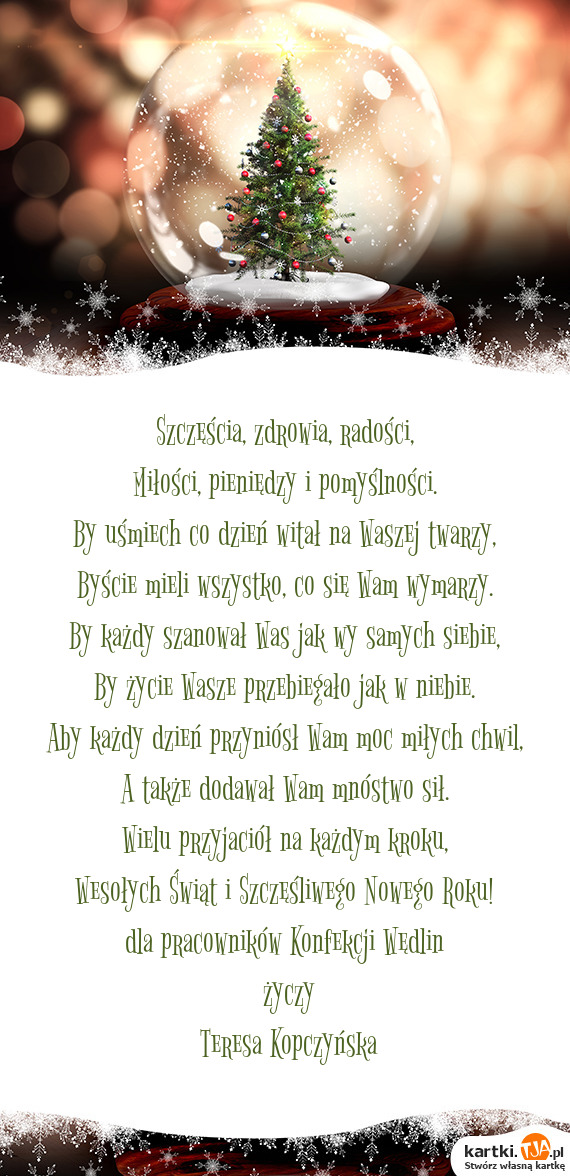 Szczęścia, zdrowia, radości,
Miłości, pieniędzy i pomyślności.
By uśmiech co dzień witał na Waszej twarzy,
Byście mieli wszystko, co się Wam wymarzy.
By każdy szanował Was jak wy samych siebie,
By życie Wasze przebiegało jak w niebie.
Aby każdy dzień przyniósł Wam moc miłych chwil,
A także dodawał Wam mnóstwo sił.
Wielu przyjaciół na każdym kroku,
Wesołych Świąt i Szczęśliwego Nowego Roku!
dla pracowników Konfekcji Wędlin
życzy
Teresa Kopczyńska
kartki.TJA.pl
Stwórz własną kartkę